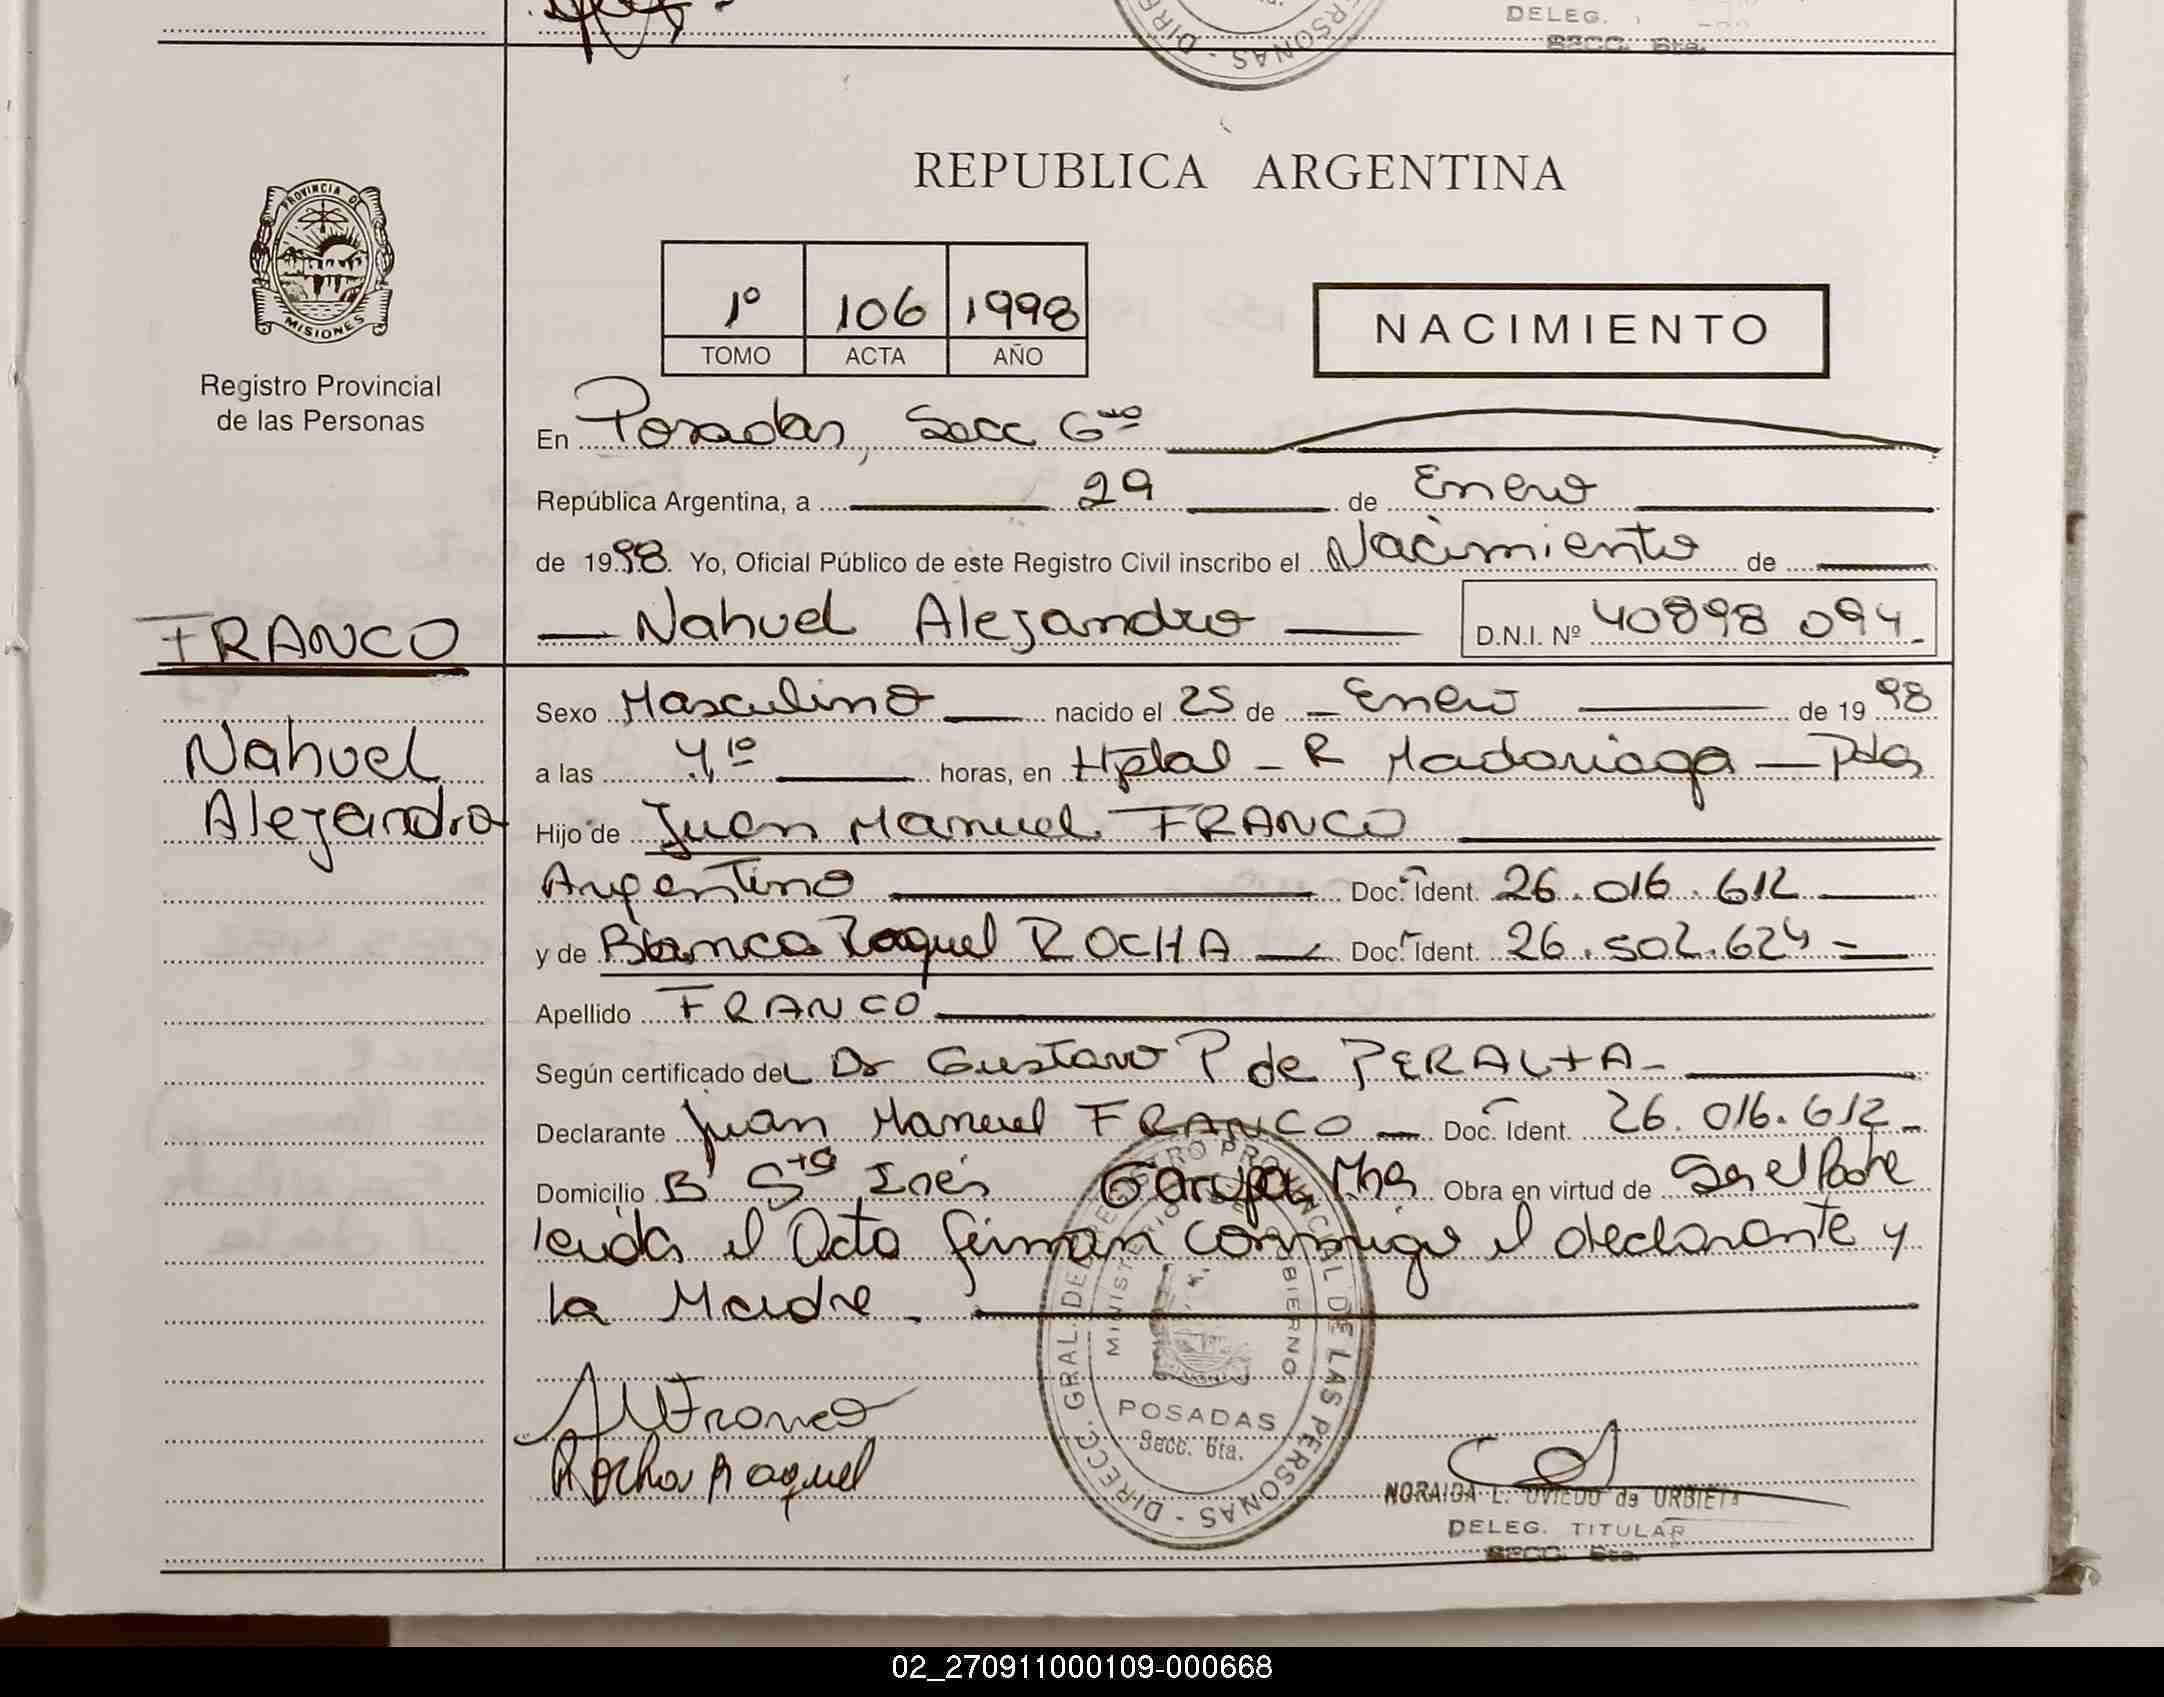 DELEG.
SECC. 6ta.
PROVINCIA DE
MISIONES
Registro Provincial
de las Personas
REPUBLICA ARGENTINA
1º 106 1998
TOMO ACTA AÑO
NACIMIENTO
En Posadas, Secc 6ta
República Argentina, a 29 de Enero
de 1998 Yo, Oficial Público de este Registro Civil inscribo el Nacimiento de
Nahuel Alejandro D.N.I. Nº 40898 094
FRANCO
Nahuel
Alejandro
Sexo Masculino nacido el 25 de Enero de 1998
a las 4,10 horas, en Hptal - R Madariaga - Pdas
Hijo de Juan Manuel FRANCO
Argentino Doc. Ident. 26.016.612
y de Blanca Raquel ROCHA Doc. Ident. 26.502.624
Apellido FRANCO
Según certificado del Dr Gustavo P de PERALTA
Declarante Juan Manuel FRANCO Doc. Ident. 26.016.612
Domicilio Bº Sta Inés Garupa, Mnes Obra en virtud de Ser el Padre
leída el Acta firman conmigo el declarante y
la Madre.
JMFranco
Rocha Raquel
DIRECC. GRAL. DEL REGISTRO PROVINCIAL DE LAS PERSONAS
MINISTERIO DE GOBIERNO
POSADAS
Secc. 6ta.
NORAIDA L. OVIEDO de URBIETA
DELEG. TITULAR
SECC. 6ta.
02_270911000109-000668